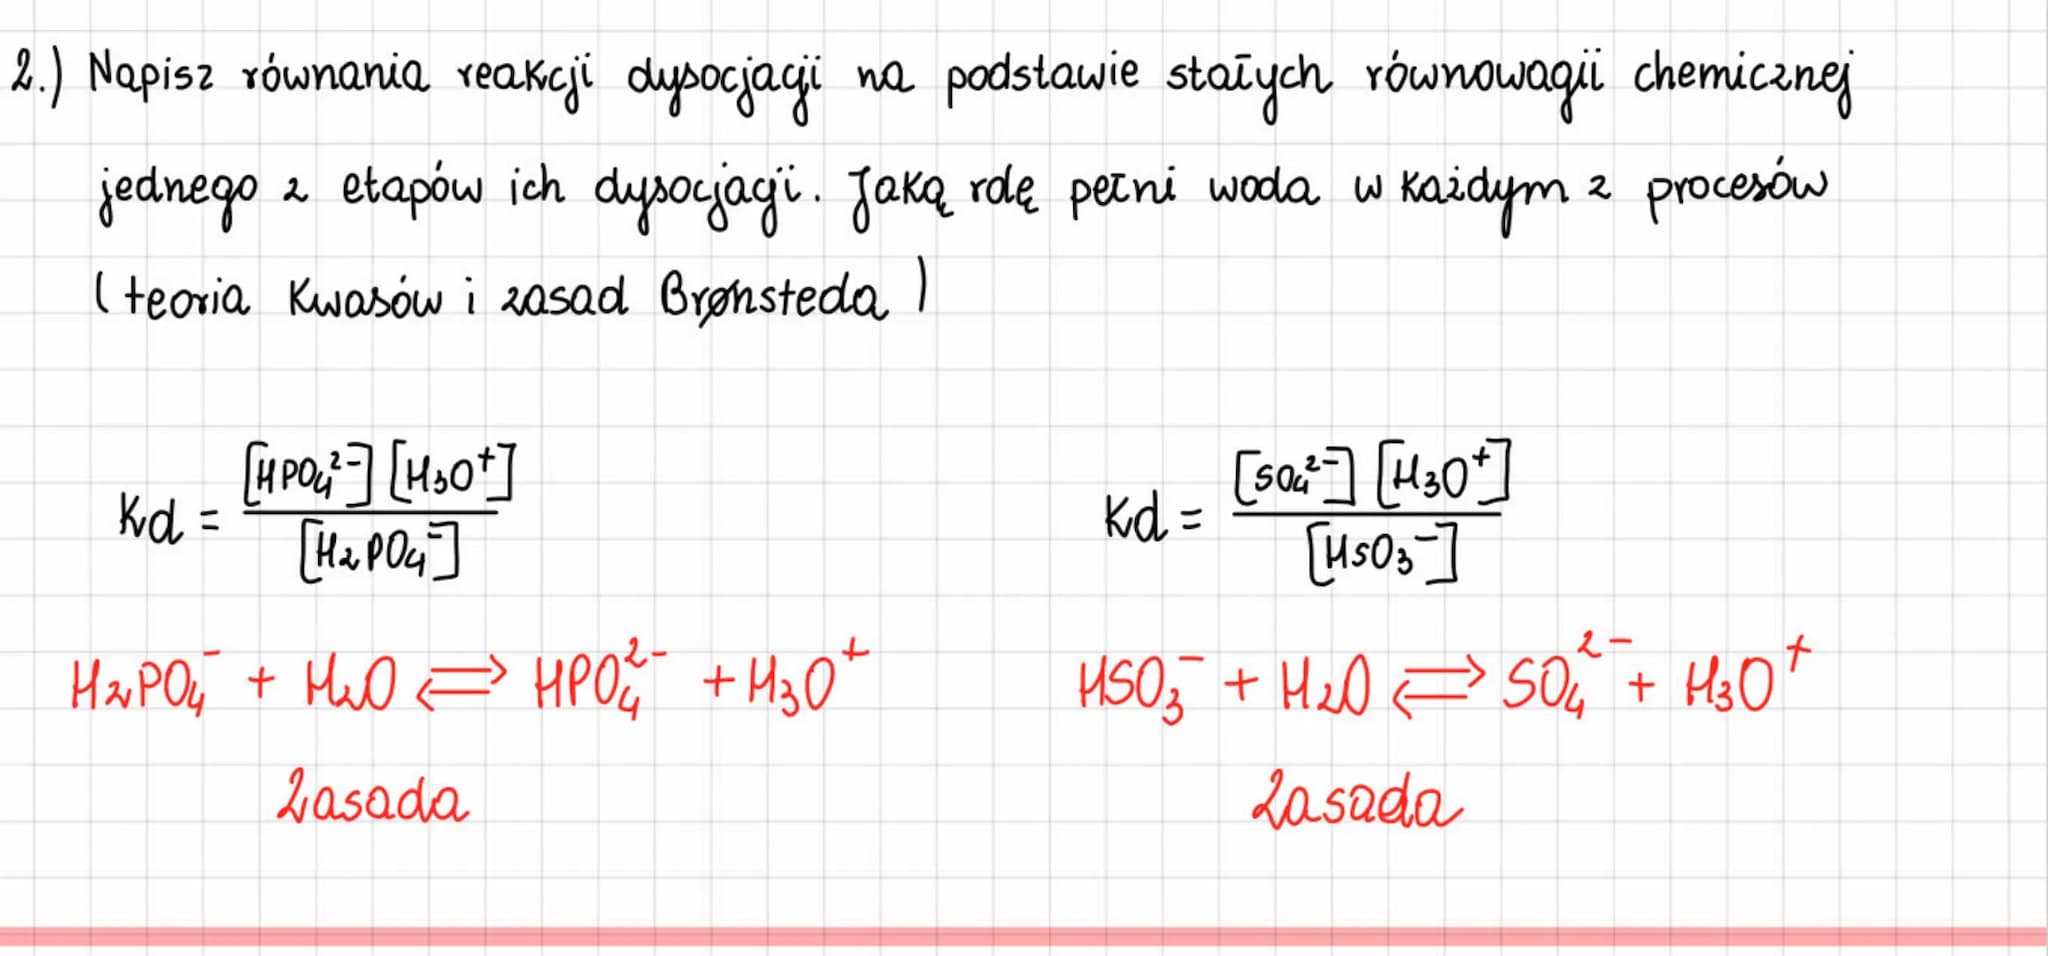 2.) Napisz równania reakcji dysocjacji na podstawie stałych równowagii chemicznej
jednego z etapów ich dysocjacji. Jaką rolę pełni woda w każdym z procesów
(teoria kwasów i zasad Brønsteda)
Kd = [HPO₄²⁻] [H₃O⁺] / [H₂PO₄⁻]
Kd = [SO₄²⁻] [H₃O⁺] / [HSO₃⁻]
H₂PO₄⁻ + H₂O ⇌ HPO₄²⁻ + H₃O⁺
HSO₃⁻ + H₂O ⇌ SO₄²⁻ + H₃O⁺
Zasada
Zasada